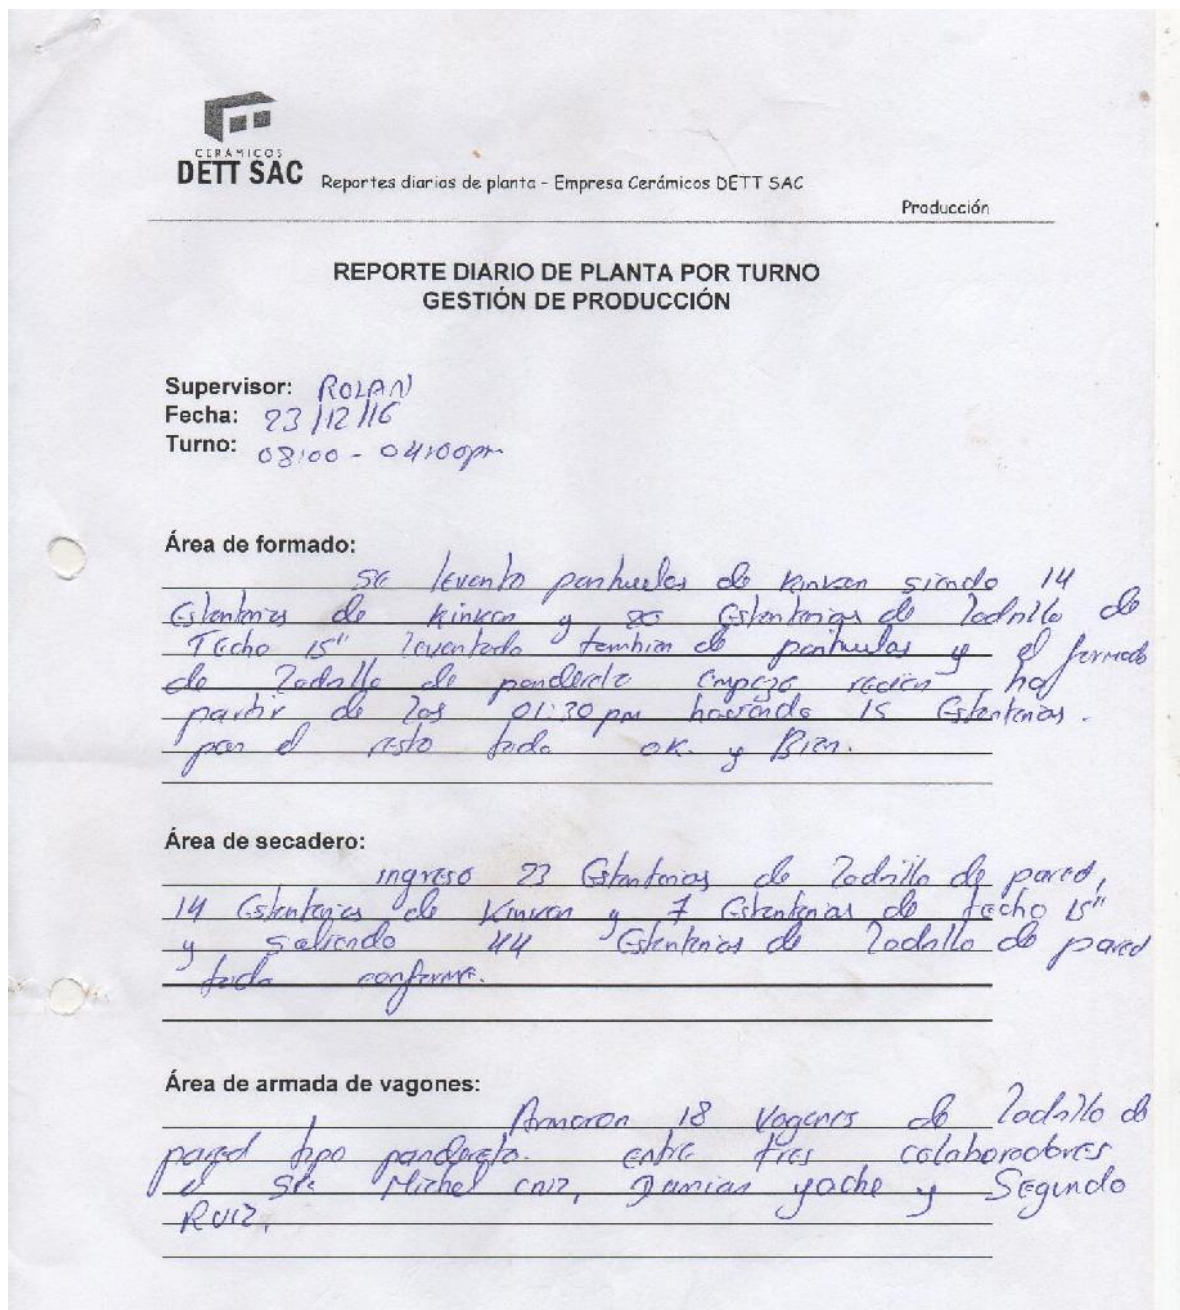 CERÁMICOS
DETT SAC
Reportes diarios de planta - Empresa Cerámicos DETT SAC
Producción
REPORTE DIARIO DE PLANTA POR TURNO
GESTIÓN DE PRODUCCIÓN
Supervisor: ROLAN
Fecha: 23/12/16
Turno: 08:00 - 04:00pm
Área de formado:
se levanto parihuelas de Kinkon siendo 14
Estanterias de Kinkon y Estanterias de Ladrillo de
Techo 15" levantado tambien de parihuelas y el formado
de Ladrillo de pandereta empezo recien
partir de las 01:30 pm haciendo 15 Estanterias.
por el resto todo OK. y Bien.
Área de secadero:
ingreso 23 Estanterias de Ladrillo de pared,
14 Estanterias de Kinkon y 7 Estanterias de techo 15"
y saliendo 44 Estanterias de Ladrillo de pared
todo conforme.
Área de armada de vagones:
Armaron 18 Vagones de Ladrillo de
pared tipo pandereta. entre tres colaboradores
el Sr. Michel cruz, Damian yache y Segundo
Ruiz,